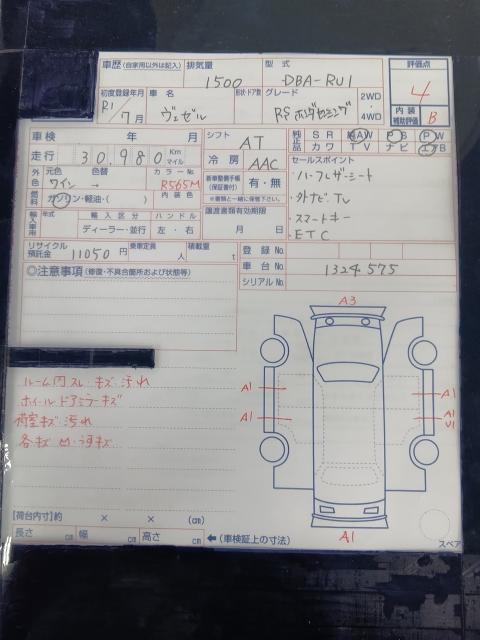 車歴 (自家用以外は記入) 排気量 型式 評価点
1500 DBA-RU1 4
初度登録年月 車名 形状・ドア数 グレード 2WD・4WD 内装補助評価
R1/7月 ヴェゼル RS ホンダセンシング B
車検 年 月 シフト AT 純正品 SR AW PS PW
走行 30,980 Km マイル 冷房 AAC カワ TV ナビ エアB
外色 元色 色替 カラーNo. 新車整備手帳(保証書付) 有・無 セールスポイント
ワイン → R565M ※書類と一緒に保管下さい。 ・ハーフレザーシート
燃料 ガソリン・軽油・( ) 内装色 譲渡書類有効期限 ・外ナビ TV
輸入車用 輸入区分 ハンドル 月 日 ・スマートキー
ディーラー・並行 左・右 ・ETC
リサイクル預託金 11050 円 乗車定員 人 積載量 t 登録No.
◎注意事項 (修復・不具合箇所および状態等) 車台No. 1324575
シリアルNo.
A3
ルーム内スレ・キズ・汚れ
ホイール ドアミラーキズ
荷室キズ・汚れ
各キズ 凹・うすキズ
A1 A1
A1 A1
U1
A1
【荷台内寸】約 × × (cm)
長さ cm 幅 cm 高さ cm ←(車検証上の寸法)
スペア